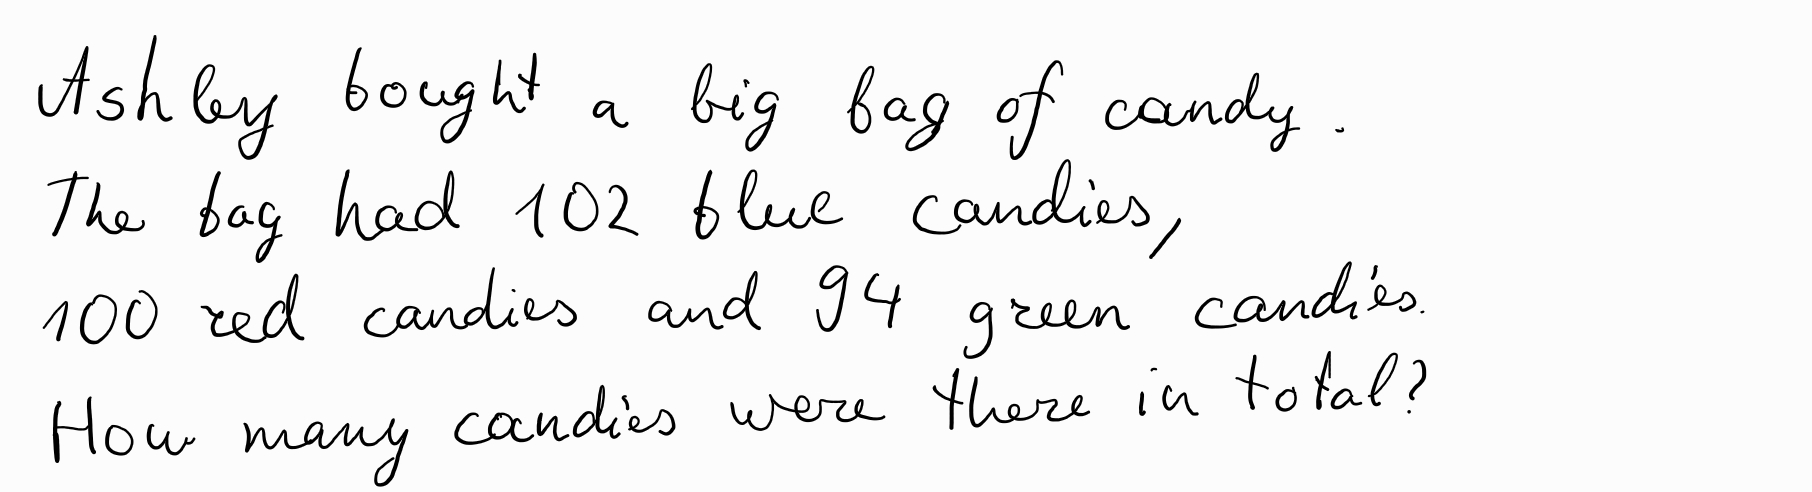 Ashley bought a big bag of candy.
The bag had 102 blue candies,
100 red candies and 94 green candies.
How many candies were there in total?